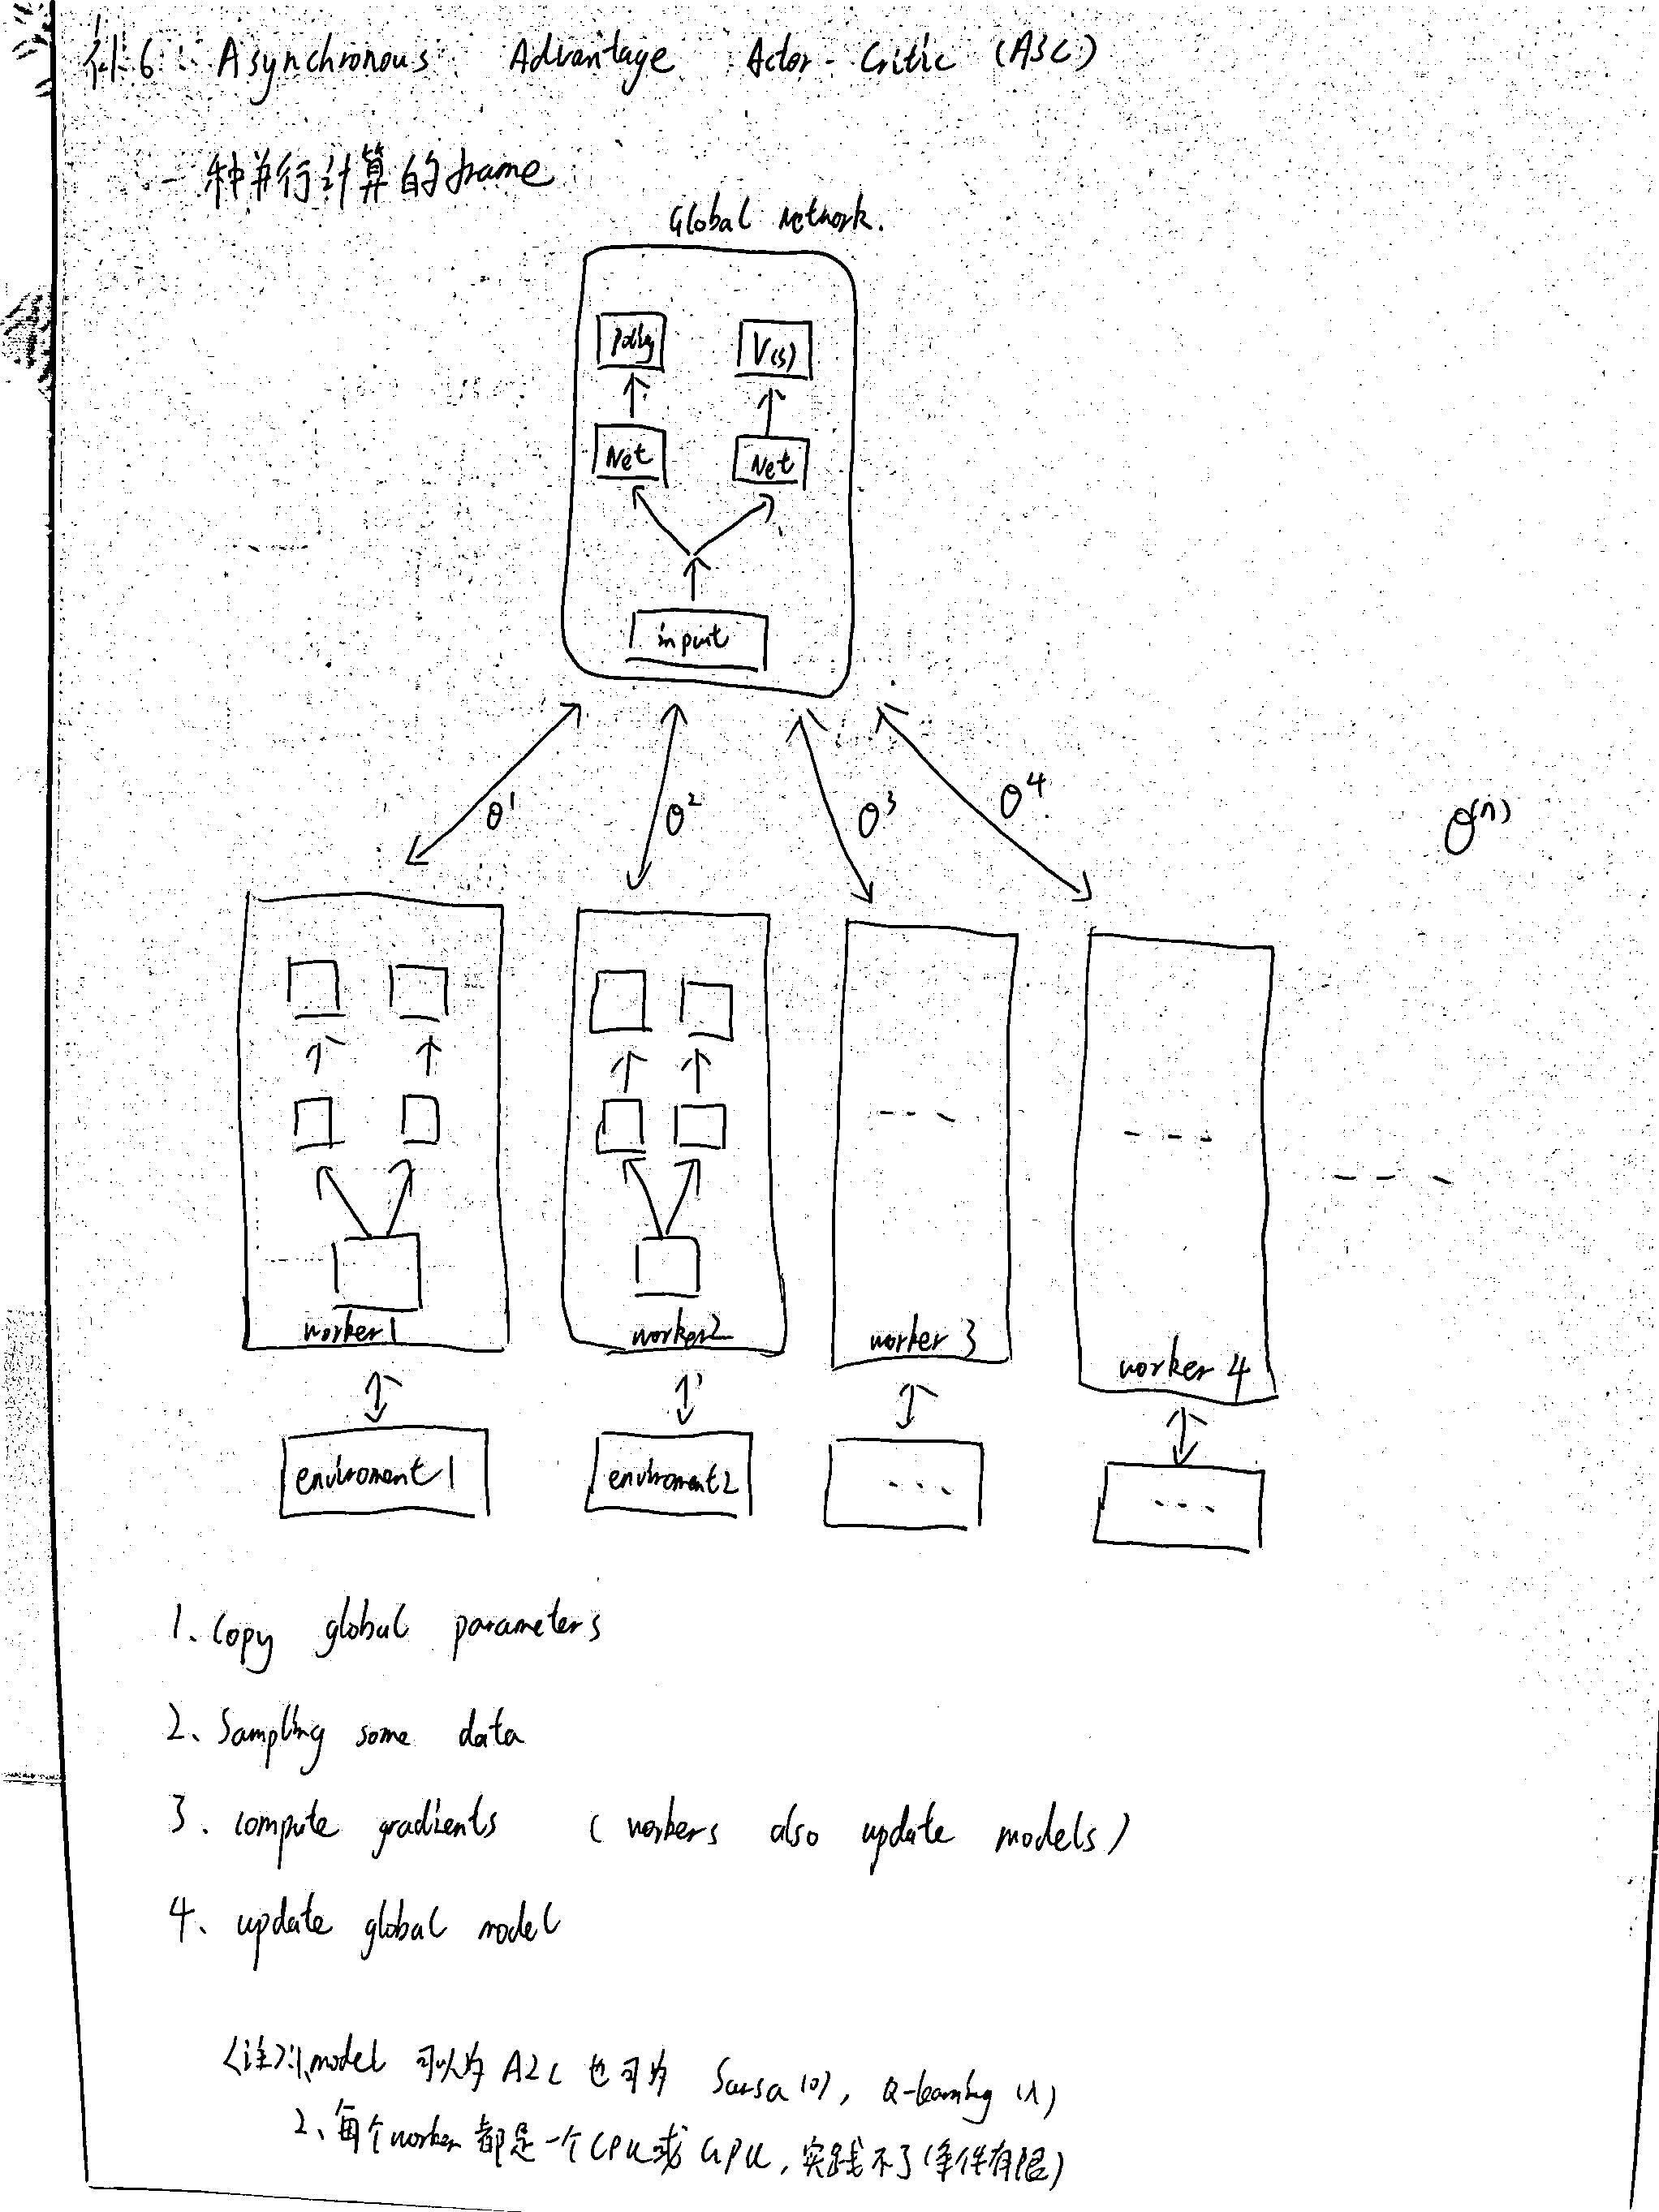 补6: Asynchronous Advantage Actor-Critic (A3C)
一种并行计算的frame
Global Network.
Policy V(s)
Net Net
input
θ¹ θ² θ³ θ⁴ θ⁽ⁿ⁾
worker1 worker2 worker 3 worker 4
enviroment1 enviroment2 ... ...
1. Copy global parameters
2、Sampling some data
3. compute gradients (workers also update models)
4、update global model
<注>:1、model 可以为 A2C 也可为 Sarsa(0), Q-learning(λ)
2、每个worker都是一个CPU或GPU,实践不了(条件有限)